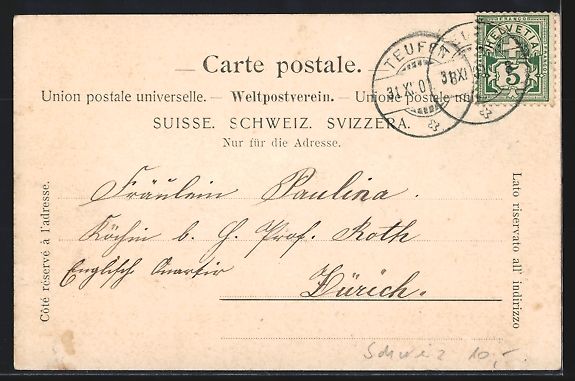 Carte postale.
Union postale universelle. — Weltpostverein. — Unione postale uni
SUISSE. SCHWEIZ. SVIZZERA.
Nur für die Adresse.
Côté réservé à l'adresse.
Lato riservato all' indirizzo
TEUFEN
31 XI
FRANCO
HELVETIA
5
Fräulein Paulina.
Köchin b. H. Prof. Roth
Englisch Quartir
Zürich.
Schweiz 10,-